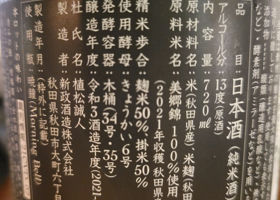 品目 日本酒(純米酒)
アルコール分 13度(原酒)
内容量 720ml
原材料名 米(秋田県産)、米麹(秋田
原料米名 美郷錦100%使用
(2021年収穫 秋田県
精米歩合 麹米50%、掛米50%
使用酵母 きょうかい6号
発酵容器 木桶(34号・35号)
醸造年度 令和3酒造年度(2021-
杜氏名 植松誠人
製造者 新政酒造株式会社
秋田県秋田市大町六丁目
製造年月 (枠外上記載)
(Morning Bell)